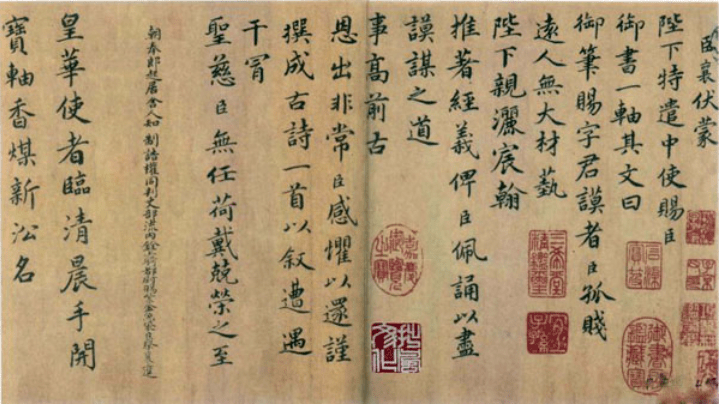 臣襄伏蒙
陛下特遣中使賜臣
御書一軸其文曰
御筆賜字君謨者臣孤賤
遠人無大材藝
陛下親灑宸翰
推著經義俾臣佩誦以盡
謨謀之道
事高前古
恩出非常臣感懼以還謹
撰成古詩一首以叙遭遇
干冒
聖慈臣無任荷戴兢榮之至
朝奉郎起居舍人知制誥權同判吏部流內銓
皇華使者臨清晨手開
寶軸香煤新沿名